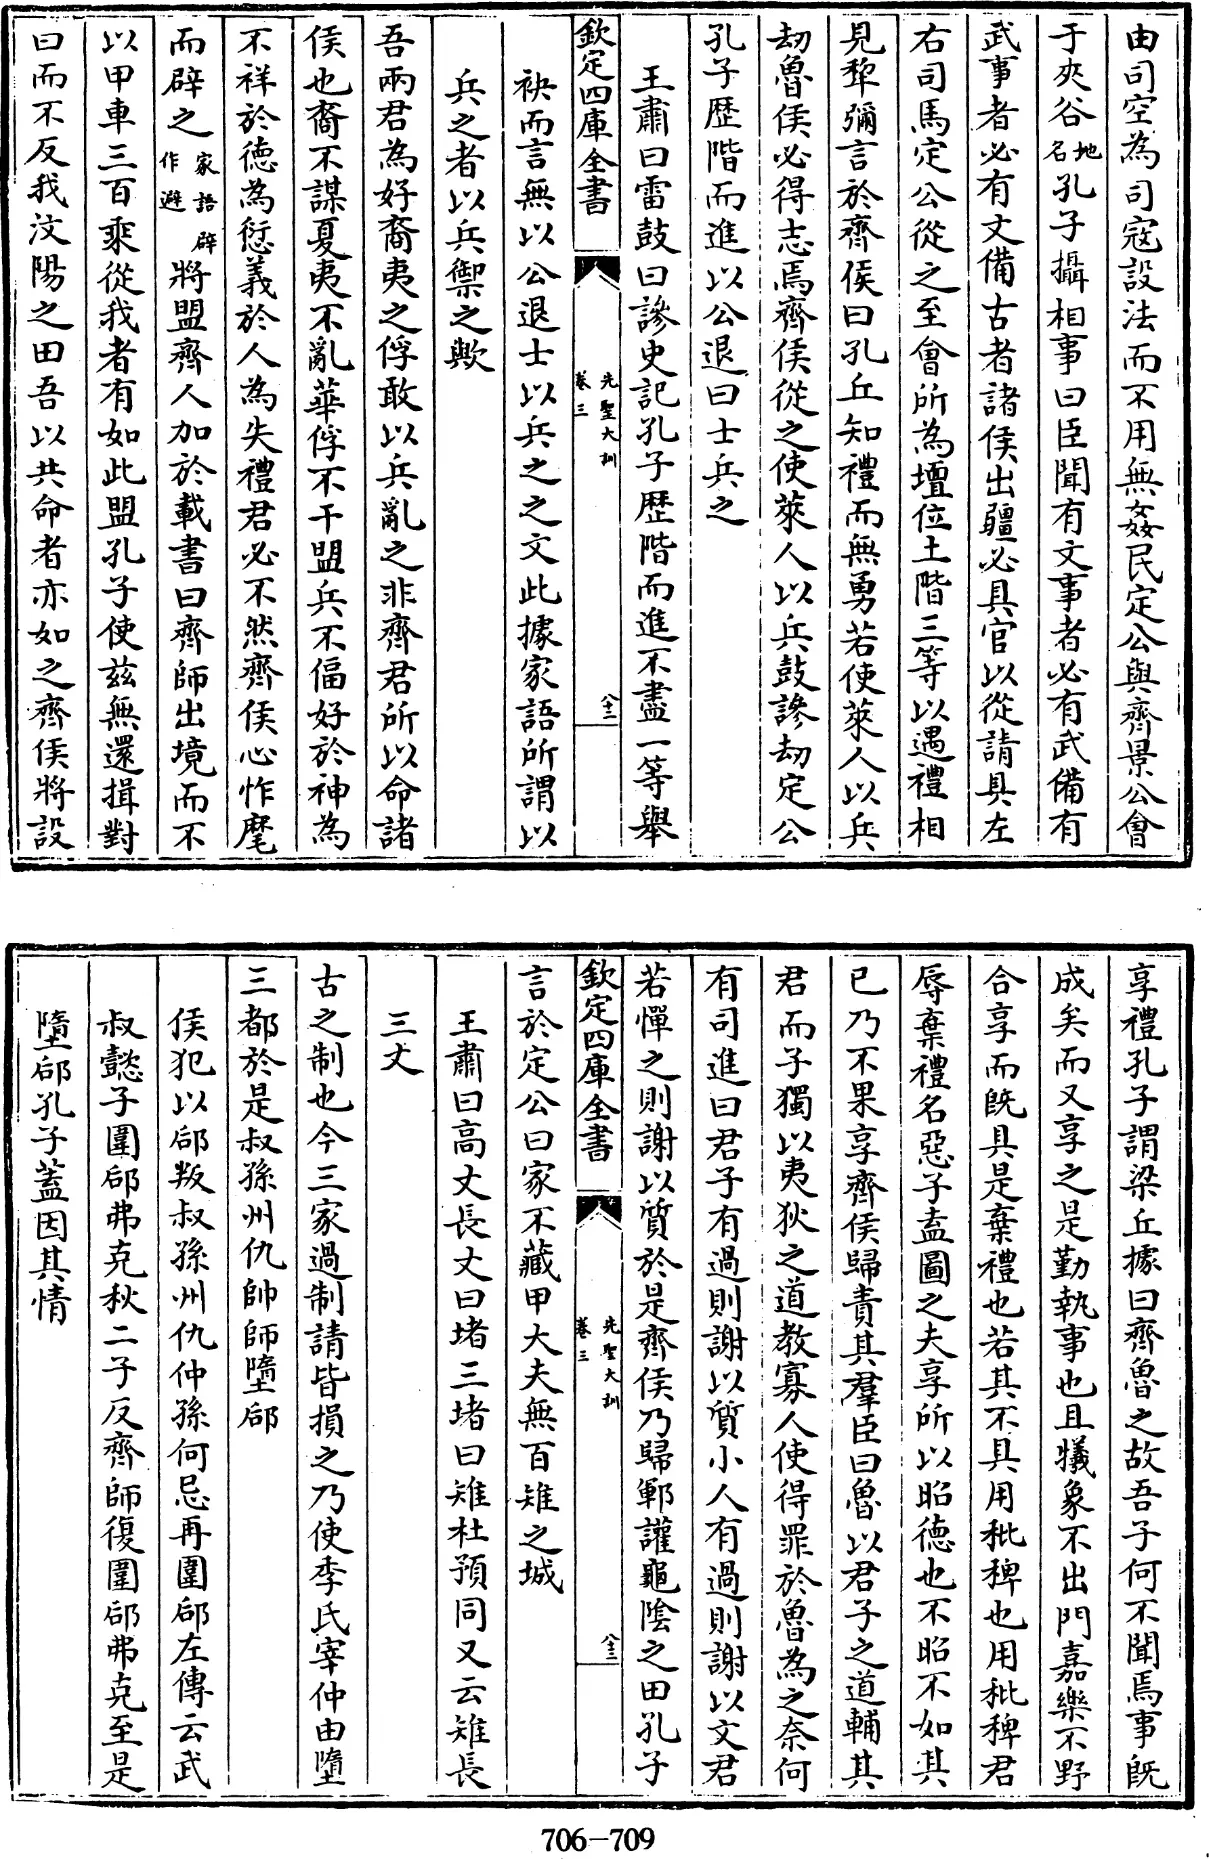 由司空為司寇設法而不用無姦民定公與齊景公會
于夾谷地名孔子攝相事曰臣聞有文事者必有武備有
武事者必有文備古者諸侯出疆必具官以從請具左
右司馬定公從之至會所為壇位土階三等以遇禮相
見犂彌言於齊侯曰孔丘知禮而無勇若使萊人以兵
劫魯侯必得志焉齊侯從之使萊人以兵鼓譟劫定公
孔子歷階而進以公退曰士兵之
王肅曰雷鼓曰譟史記孔子歷階而進不盡一等舉
欽定四庫全書
先聖大訓
卷三
八十二
袂而言無以公退士以兵之之文此據家語所謂以
兵之者以兵禦之歟
吾兩君為好裔夷之俘敢以兵亂之非齊君所以命諸
侯也裔不謀夏夷不亂華俘不干盟兵不偪好於神為
不祥於德為愆義於人為失禮君必不然齊侯心怍麾
而辟之家語辟作避將盟齊人加於載書曰齊師出境而不
以甲車三百乘從我者有如此盟孔子使兹無還揖對
曰而不反我汶陽之田吾以共命者亦如之齊侯將設
享禮孔子謂梁丘據曰齊魯之故吾子何不聞焉事既
成矣而又享之是勤執事也且犧象不出門嘉樂不野
合享而既具是棄禮也若其不具用秕稗也用秕稗君
辱棄禮名惡子盍圖之夫享所以昭德也不昭不如其
已乃不果享齊侯歸責其羣臣曰魯以君子之道輔其
君而子獨以夷狄之道教寡人使得罪於魯為之奈何
有司進曰君子有過則謝以質小人有過則謝以文君
若憚之則謝以質於是齊侯乃歸鄆讙龜陰之田孔子
欽定四庫全書
先聖大訓
卷三
八十三
言於定公曰家不藏甲大夫無百雉之城
王肅曰高丈長丈曰堵三堵曰雉杜預同又云雉長
三丈
古之制也今三家過制請皆損之乃使季氏宰仲由墮
三都於是叔孫州仇帥師墮郈
侯犯以郈叛叔孫州仇仲孫何忌再圍郈左傳云武
叔懿子圍郈弗克秋二子反齊師復圍郈弗克至是
墮郈孔子蓋因其情
706-709